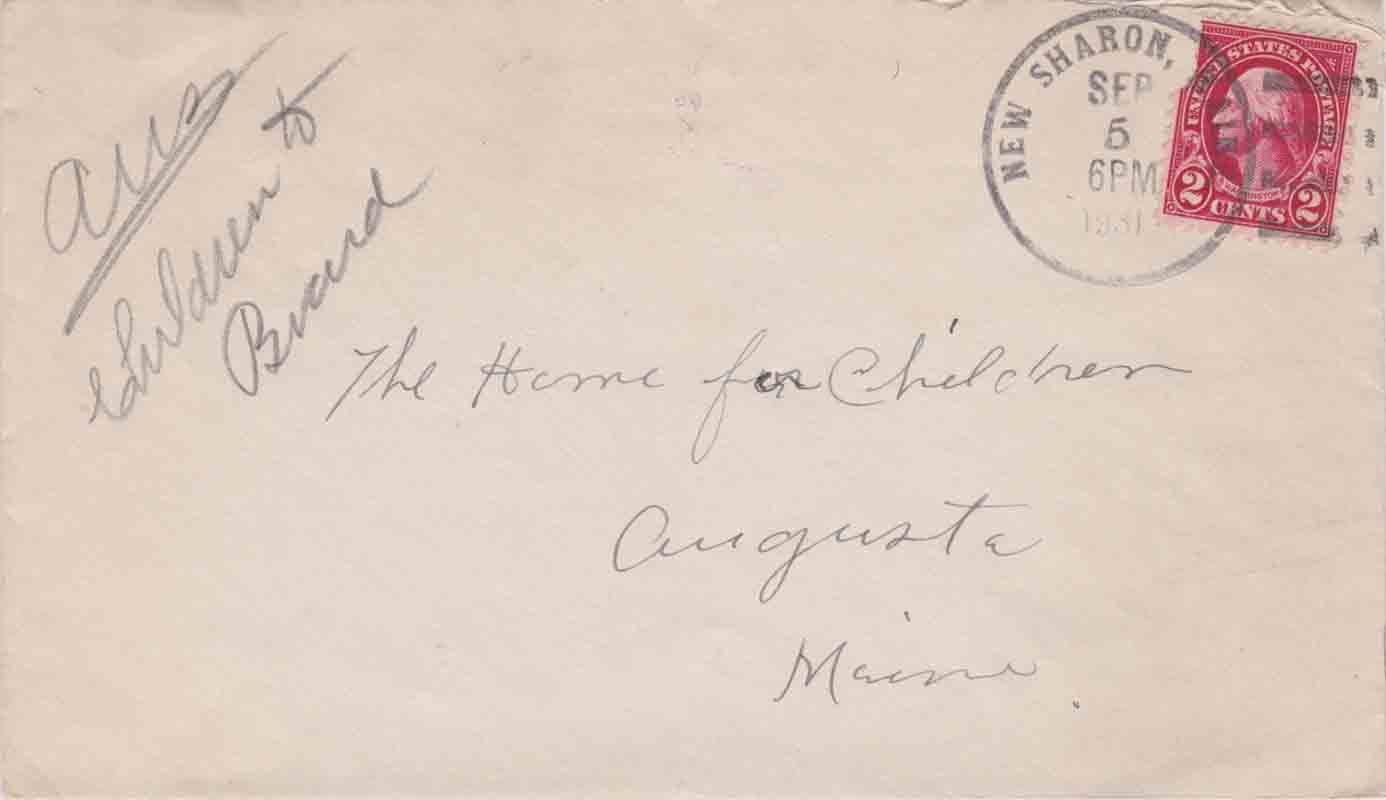 Ans
Children to
Board
NEW SHARON,
SEP
5
6PM
1931
UNITED STATES POSTAGE
WASHINGTON
2 CENTS 2
The Home for Children
Augusta
Maine